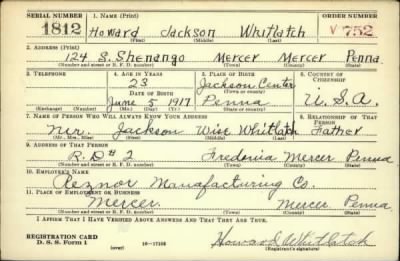 SERIAL NUMBER 1. NAME (Print) ORDER NUMBER
1812 Howard Jackson Whitlatch V 752
(First) (Middle) (Last)
2. ADDRESS (Print)
124 S. Shenango Mercer Mercer Penna
(Number and street or R. F. D. number) (Town) (County) (State)
3. TELEPHONE 4. AGE IN YEARS 5. PLACE OF BIRTH 6. COUNTRY OF CITIZENSHIP
23 Jackson Center
DATE OF BIRTH (Town or county)
June 5 1917 Penna U.S.A.
(Exchange) (No.) (Mo.) (Day) (Yr.) (State or country)
7. NAME OF PERSON WHO WILL ALWAYS KNOW YOUR ADDRESS 8. RELATIONSHIP OF THAT PERSON
Mr. Jackson Wise Whitlatch Father
(Mr., Mrs., Miss) (First) (Middle) (Last)
9. ADDRESS OF THAT PERSON
R.D# 2 Fredonia Mercer Penna
(Number and street or R. F. D. number) (Town) (County) (State)
10. EMPLOYER'S NAME
Reznor Manufacturing Co.
11. PLACE OF EMPLOYMENT OR BUSINESS
Mercer Mercer Penna.
(Number and street or R. F. D. number) (Town) (County) (State)
I AFFIRM THAT I HAVE VERIFIED ABOVE ANSWERS AND THAT THEY ARE TRUE.
REGISTRATION CARD
D. S. S. Form 1 (over) 16—17105 Howard Whitlatch
(Registrant's signature)